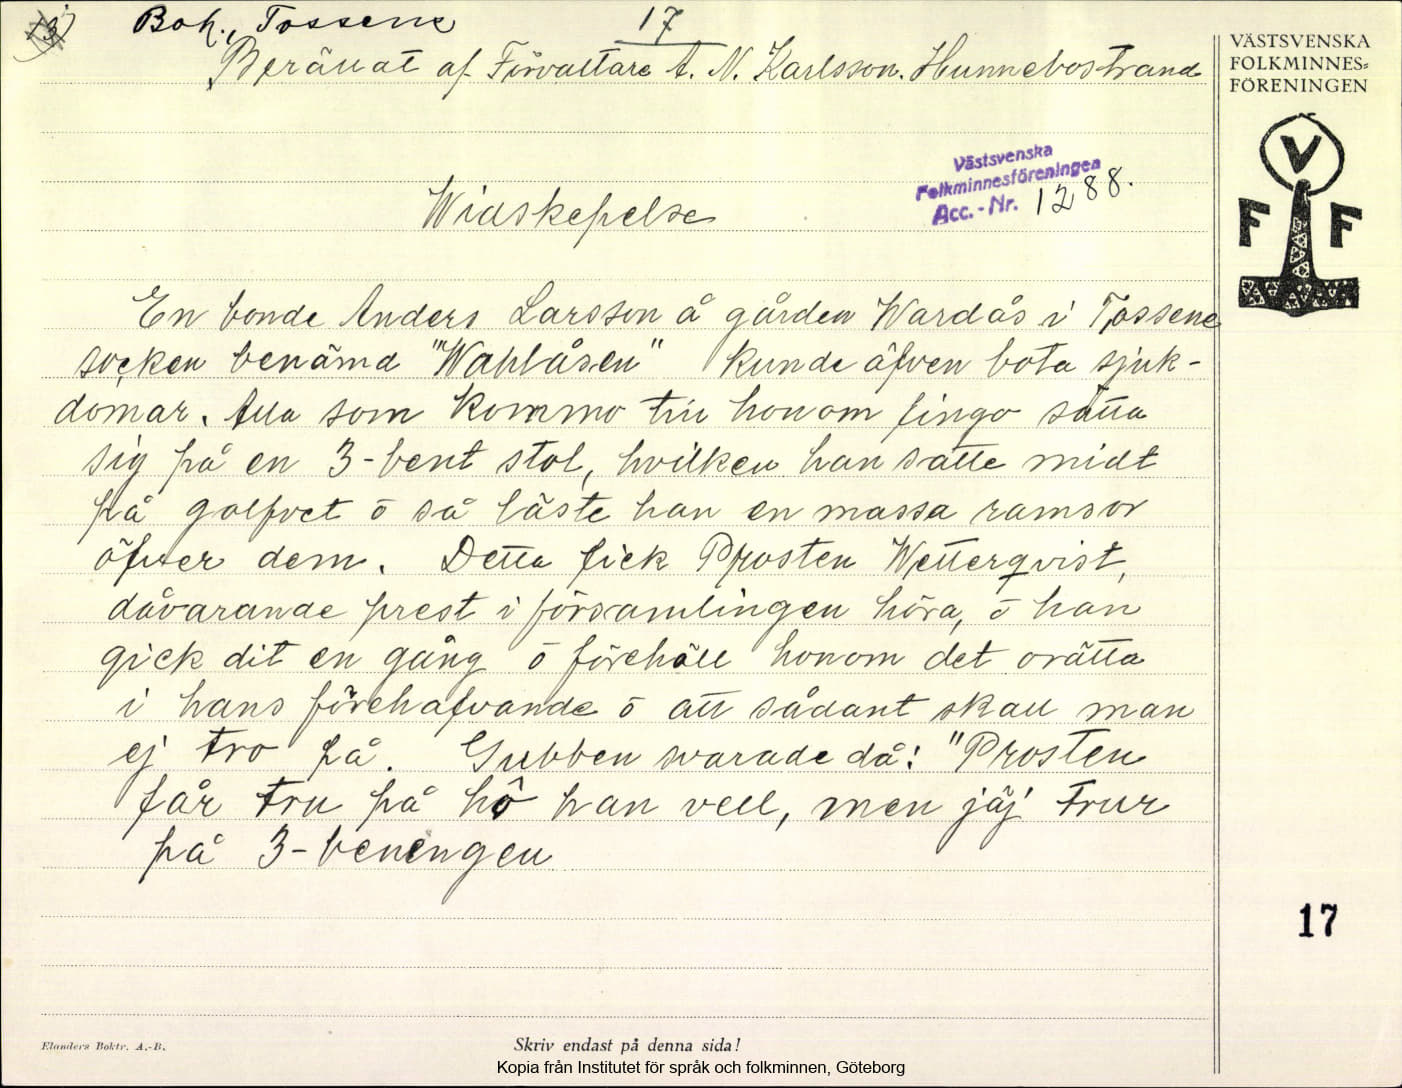 13) Boh., Tossene
17
Berättat af Förvaltare A. N. Karlsson. Hunnebostrand
VÄSTSVENSKA
FOLKMINNES=
FÖRENINGEN
V
F F
Västsvenska
Folkminnesföreningen
Acc. - Nr. 1288.
Widskepelse
En bonde Anders Larsson å gården Wardås i Tossene
socken benämd "Wahlåsen" kunde äfven bota sjuk-
domar. Alla som kommo till honom fingo sätta
sig på en 3-bent stol, hvilken han satte midt
på golfvet ō så läste han en massa ramsor
öfver dem. Detta fick Prosten Wetterqvist,
dåvarande prest i församlingen höra, ō han
gick dit en gång ō förehöll honom det orätta
i hans förehafvande ō att sådant skall man
ej tro på. Gubben svarade då: "Prosten
får tru på hô han vell, men jäj trur
på 3-beningen
17
Elanders Boktr. A.-B.
Skriv endast på denna sida!
Kopia från Institutet för språk och folkminnen, Göteborg